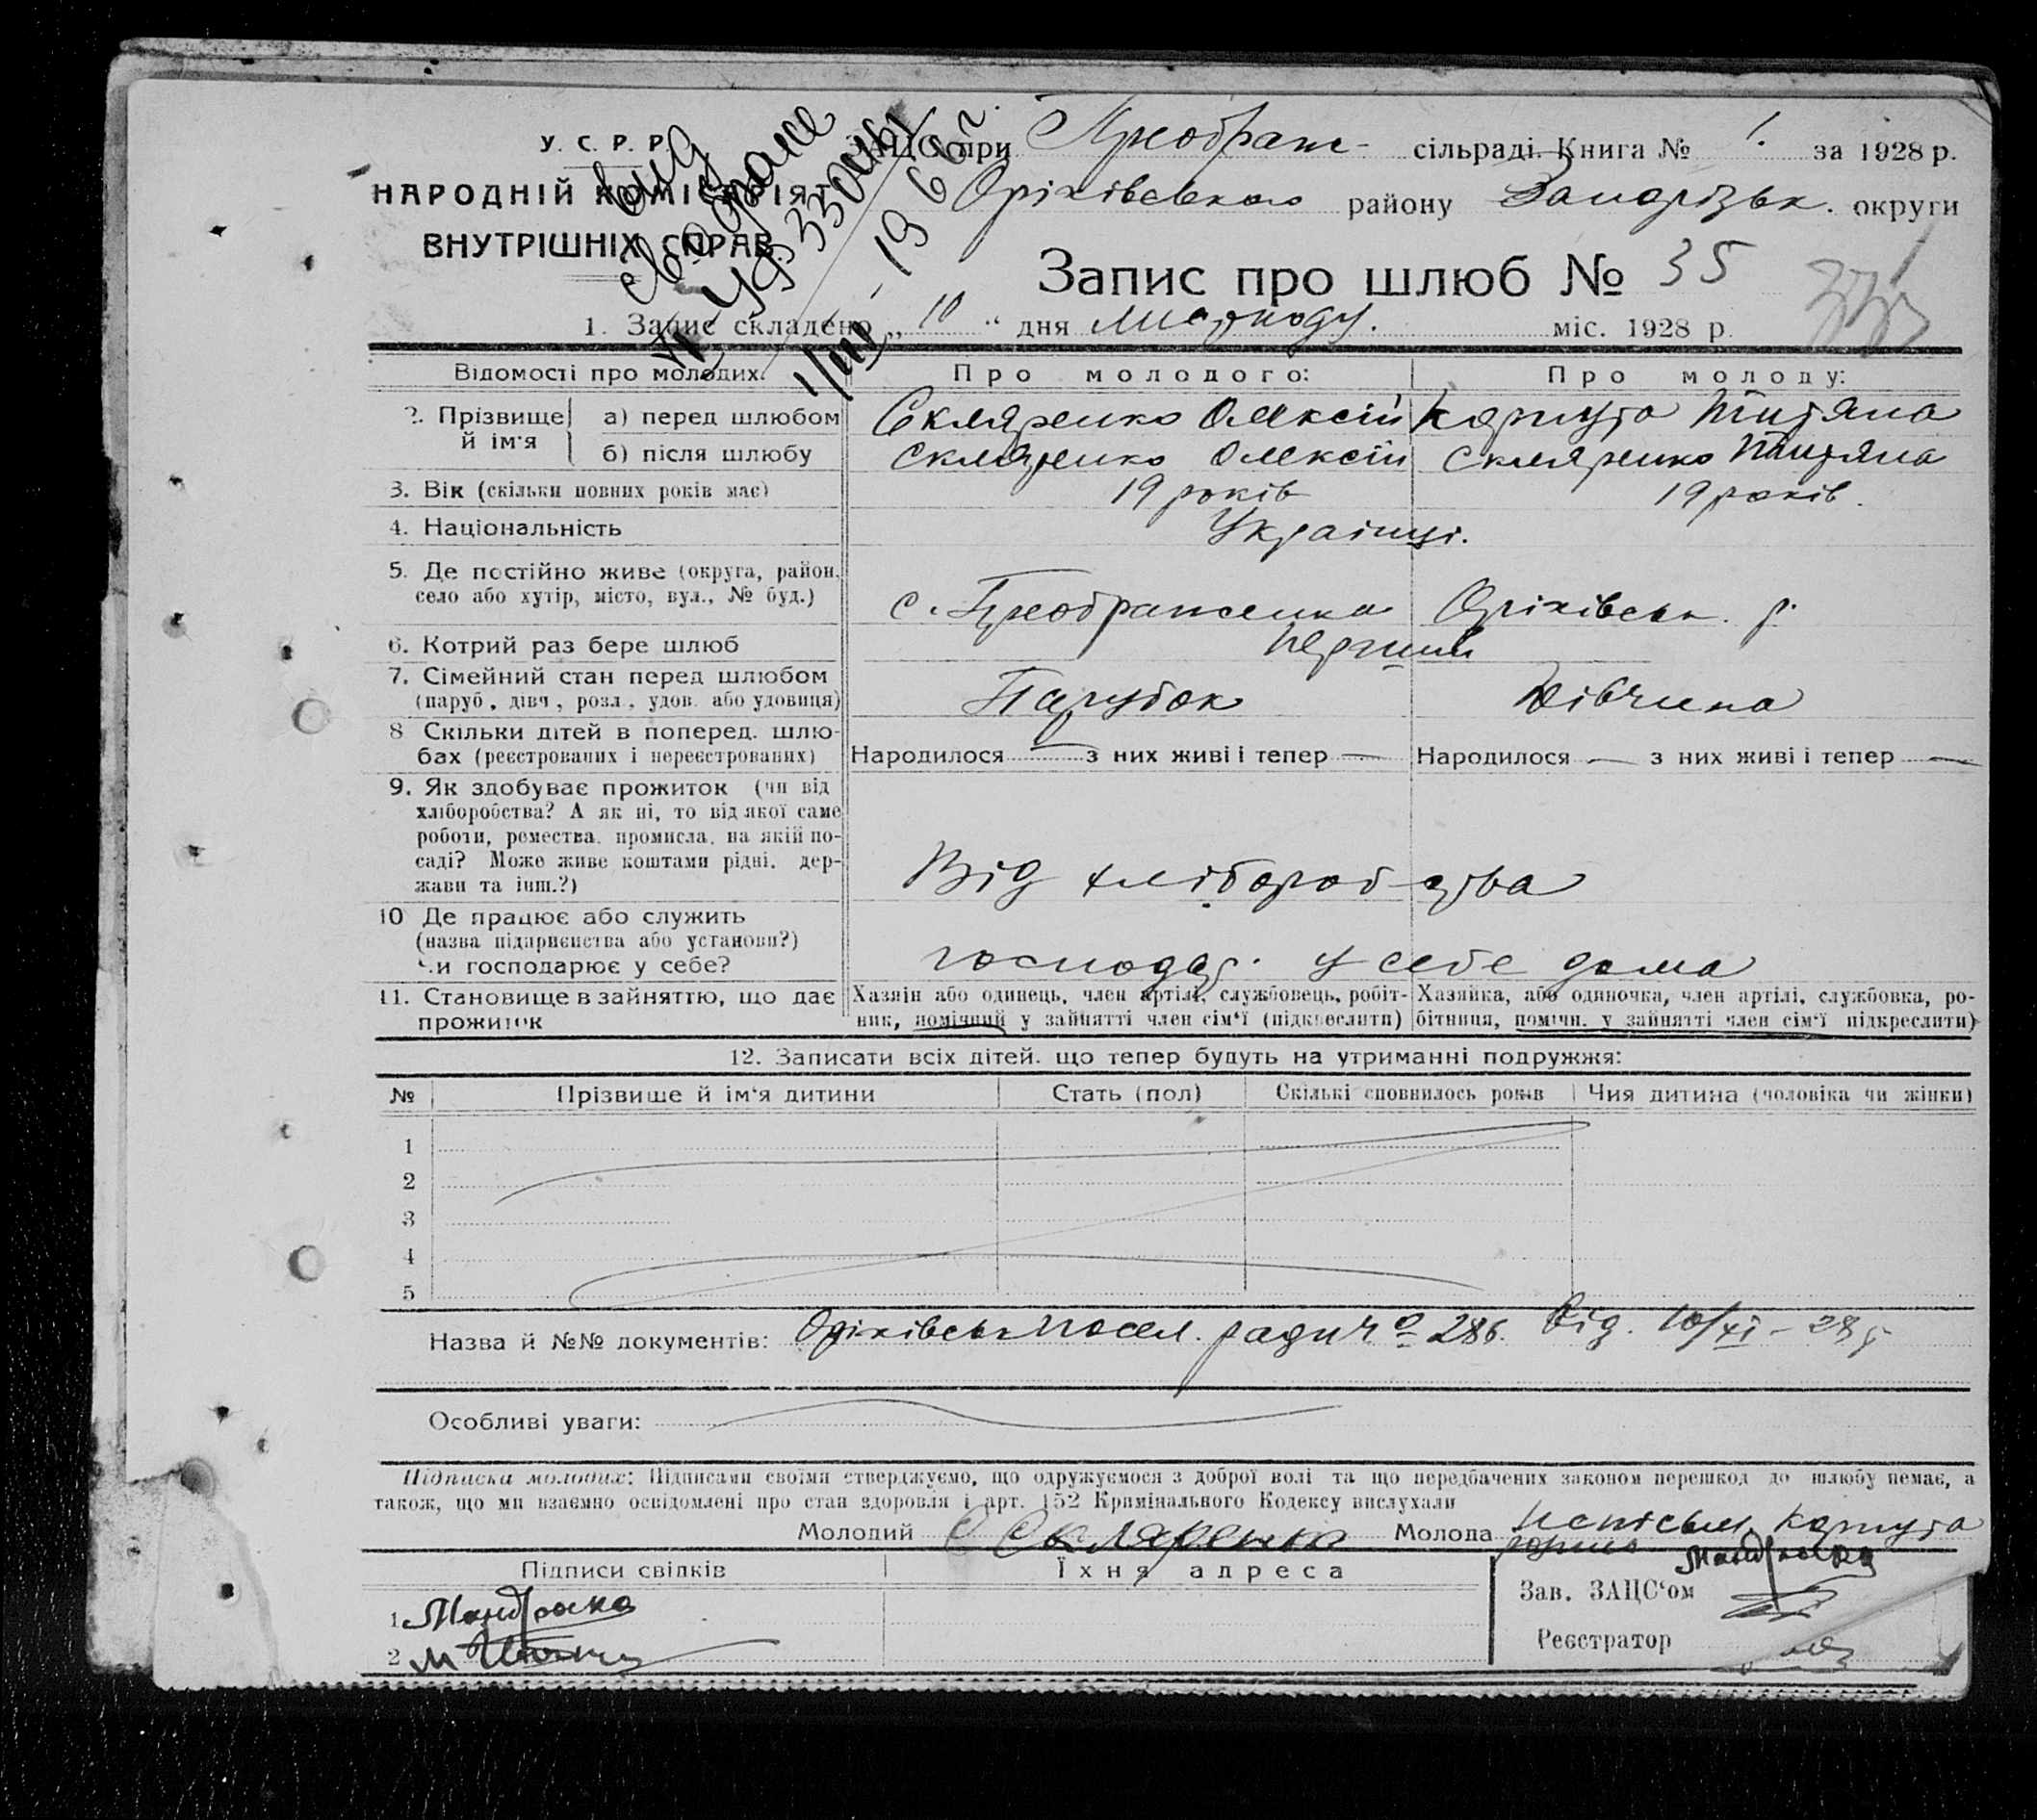 У. С. Р. Р.
НАРОДНІЙ КОМІСАРІЯТ
ВНУТРІШНІХ СПРАВ
ЗАЦС при Преображ- сільраді. Книга № 1. за 1928 р.
Оріхівського району Запорізьк. округи
Запис про шлюб № 35
1. Запис складено „10“ дня листподу. міс. 1928 р.
вид
св-о о браке
УР 33
1/III - 1966 г.
Відомості про молодих.
Про молодого:
Про молоду:
2. Прізвище й ім'я
а) перед шлюбом Скляренко Олексій Карпута Титяна
б) після шлюбу Скляренко Олексій Скляренко Титяна
3. Вік (скільки повних років має) 19 років 19 років.
4. Національність Українці.
5. Де постійно живе (округа, район,
село або хутір, місто, вул., № буд.) с. Преображенка Оріхівськ. р.
6. Котрий раз бере шлюб перший
7. Сімейний стан перед шлюбом
(паруб., дівч., розл., удов. або удовиця) Парубок Дівчина
8 Скільки дітей в поперед. шлю-
бах (реєстрованих і нереєстрованих) Народилося — з них живі і тепер — Народилося — з них живі і тепер —
9. Як здобуває прожиток (чи від
хліборобства? А як ні, то від якої саме
роботи, ремества, промисла, на якій по-
саді? Може живе коштами рідні, дер-
жави та інш.?)
Від хліборобства
10 Де працює або служить
(назва підприємства або установи?)
Чи господарює у себе?
господар. у себе дома
11. Становище в зайняттю, що дає
прожиток
Хазяїн або одинець, член артілі, службовець, робіт-
ник, помічний у зайнятті член сім'ї (підкреслити)
Хазяйка, або одиночка, член артілі, службовка, ро-
бітниця, помічн. у зайнятті член сім'ї підкреслити)
12. Записати всіх дітей, що тепер будуть на утриманні подружжя:
№ Прізвище й ім'я дитини Стать (пол) Скількі сповнилось років Чия дитина (чоловіка чи жінки)
1
2
3
4
5
Назва й №№ документів: Оріхівськ посел. ради ч 286. від. 10/XI-28 р
Особливі уваги:
Підписка молодих: Підписами своїми стверджуємо, що одружуємося з доброї волі та що передбачених законом перешкод до шлюбу немає, а
також, що ми взаємно освідомлені про стан здоровля і арт. 152 Кримінального Кодексу вислухали
Молодий О Скляренко Молода неписьм. Карпута
Підписи свідків
Їхня адреса
Зав. ЗАЦС'ом
Реєстратор
1.
2 М